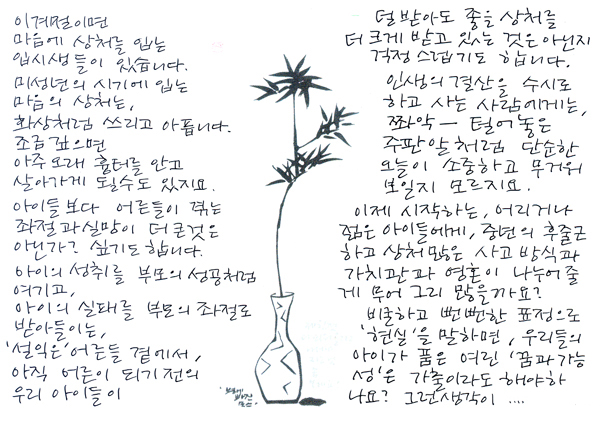 이계절이면
마음에 상처를 입는
입시생들이 있습니다.
미성년의 시기에 입는
마음의 상처는,
화상처럼 쓰리고 아픕니다.
조금 깊으면
아주 오래 흉터를 안고
살아가게 될수도 있지요.
아이들보다 어른들이 겪는
좌절과 실망이 더 큰것은
아닌가? 싶기도 합니다.
아이의 성취를 부모의 성공처럼
여기고,
아이의 실패를 부모의 좌절로
받아들이는,
'설익은' 어른들 곁에서,
아직 어른이 되기 전의
우리 아이들이
덜 받아도 좋을 상처를
더 크게 받고 있는 것은 아닌지
걱정스럽기도 합니다.
인생의 결산을 수시로
하고 사는 사람에게는,
쫘악 — 털어 놓은
주판알처럼 단순한
오늘이 소중하고 무거워
보일지 모르지요.
이제 시작하는, 어리거나
젊은 아이들에게, 중년의 후줄근
하고 상처 많은 사고방식과
가치관과 영혼이 나누어 줄
게 무어 그리 많을까요?
비굴하고 뻔뻔한 표정으로
'현실'을 말하면, 우리들의
아이가 품은 여린 '꿈과 가능
성'은 가출이라도 해야하
나요? 그런 생각이 ....